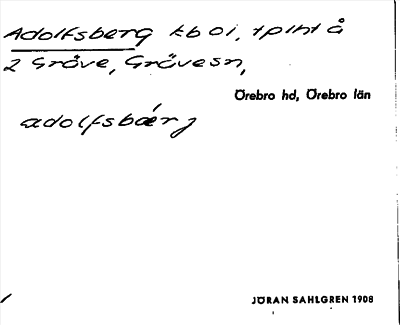 Adolfsberg kb oi, tplht å
2 Gräve, Grävesn,
Örebro hd, Örebro län
adolfsbærj
JÖRAN SAHLGREN 1908